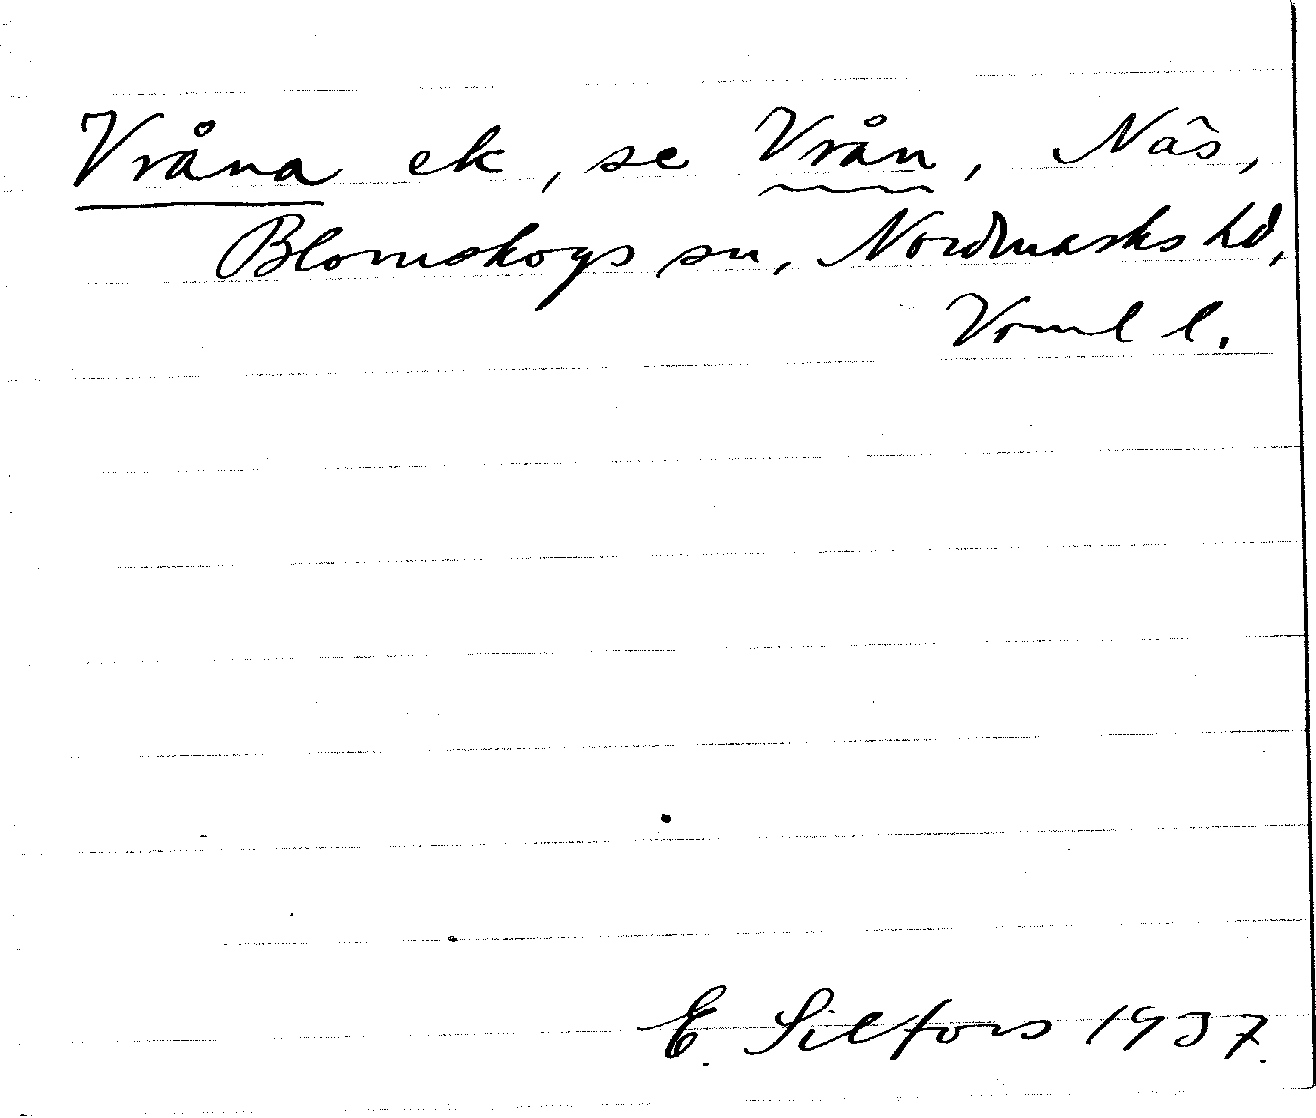 Vråna ek, se Vrån, Näs,
Blomskogs sn, Nordmarks hd,
Vrml l.
E. Silfors 1937.